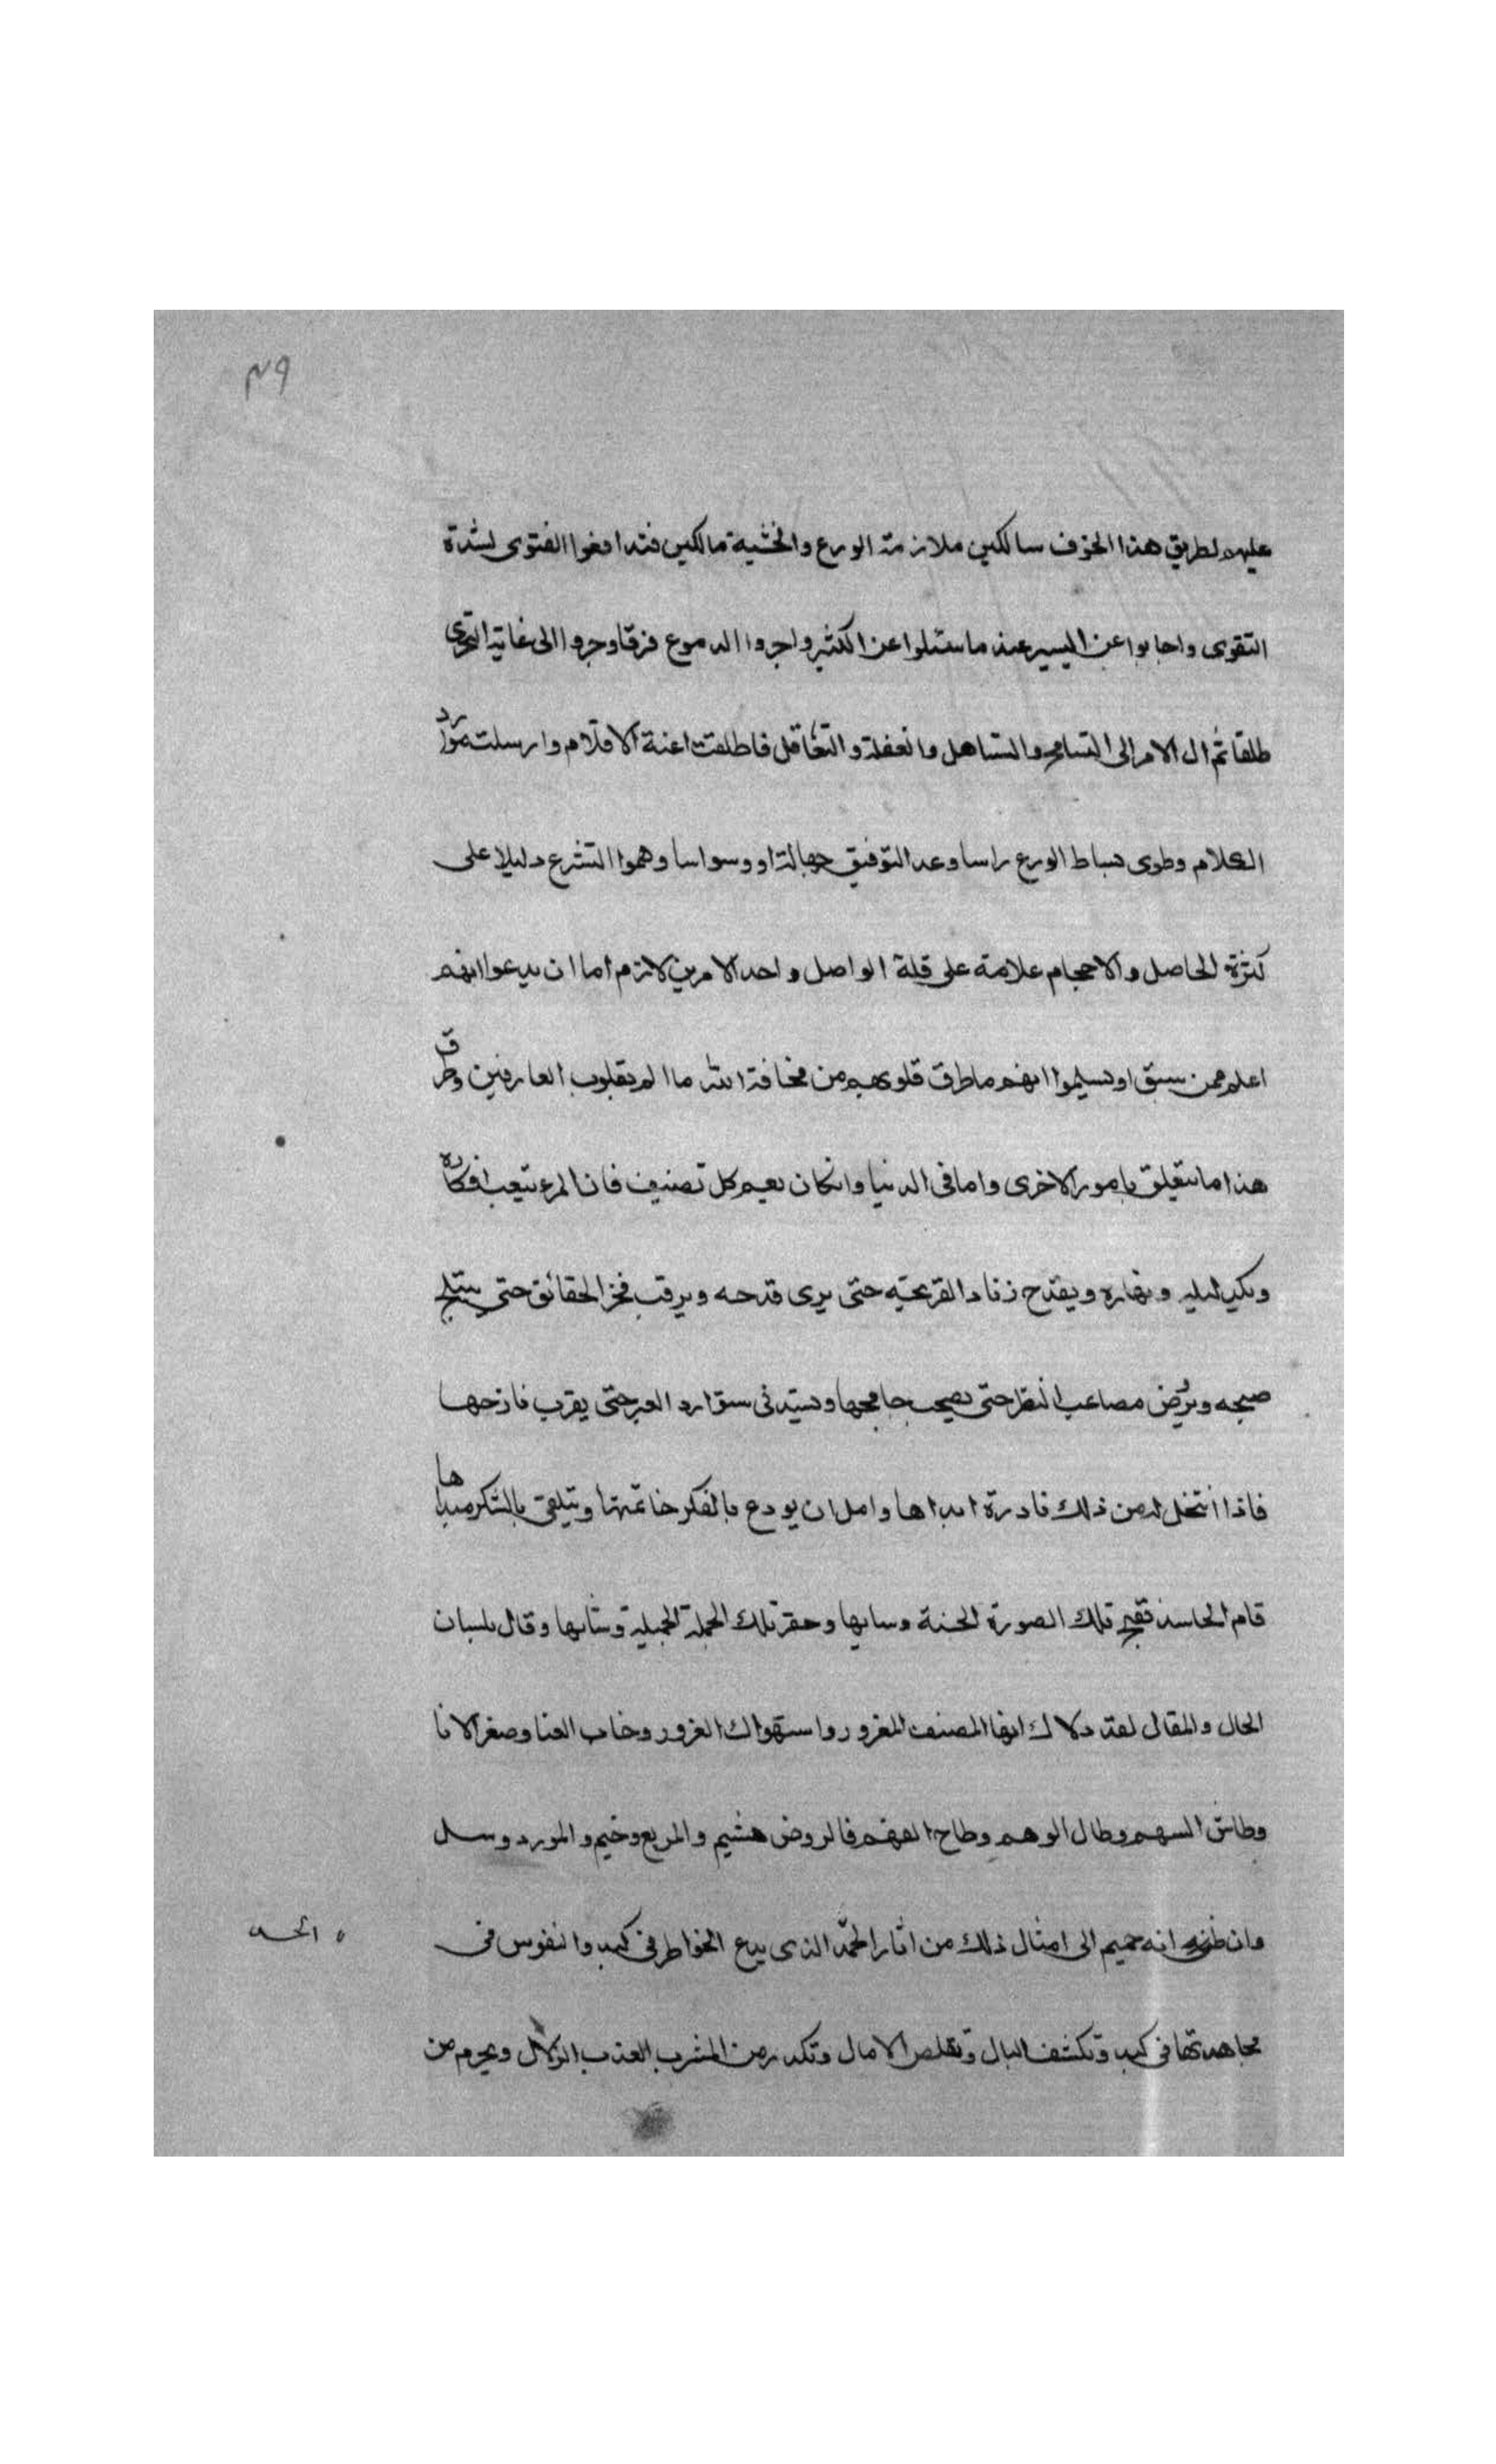 ٤٩
عليهم لطريق هذا الخوف سالكين ملازمة الورع والخشية مالكين فتدافعوا الفتوى لشدة
التقوى واجابوا عن اليسير عند ما سئلوا عن الكثير واجروا الدموع فرقا وجروا الى غاية التحرى
طلقا ثم ال الامر الى التسامح والتساهل والغفلة والتغافل فاطلقت اعنة الاقلام وارسلت موارد
الكلام وطوى بساط الورع راسا وعد التوقيف جهالة او وسواسا وهموا التسرع دليلا على
كثرة الحاصل والاحجام علامة على قلة الواصل واحد الامرين لازم اما ان يدعوا انهم
اعلم ممن سبق او يسلموا انهم ما طرق قلوبهم من مخافة الله ما الم بقلوب العارفين وطرق
هذا ما يتعلق بامور الاخرى واما فى الدنيا وان كان يعم كل تصنيف فان المرء يتعب افكاره
ويكد ليله ونهاره ويقدح زناد القريحة حتى يرى قدحه ويرقب فجر الحقائق حتى يتبلج
صبحه ويروض مصاعب النظر حتى يصحب جامحها ويستدنى شوارد العبر حتى يقرب نازحها
فاذا انتخل له من ذلك نادرة ابداها وامل ان يودع بالفكر خاتمتها ويتلقى بالشكر مبداها
قام الحاسد فقبح تلك الصورة الحسنة وسابها وحقر تلك الجملة الجميلة وشابها وقال بلسان
الحال والمقال لقد دلاك ايها المصنف المغرور واستهواك الغرور وخاب العنا وصغر الانا
وطاش السهم وطال الوهم وطاح الفهم فالروض هشيم والمربع وخيم والمورد وشل
وان ظن انه جميم الى امثال ذلك من اثار الحسد الذى يدع الخواطر فى كمد والنفوس فى
الحسد
مجاهدتها فى كبد وتكسف البال وتقلص الامال وتكدر من المشرب العذب الزلال ويحرم من